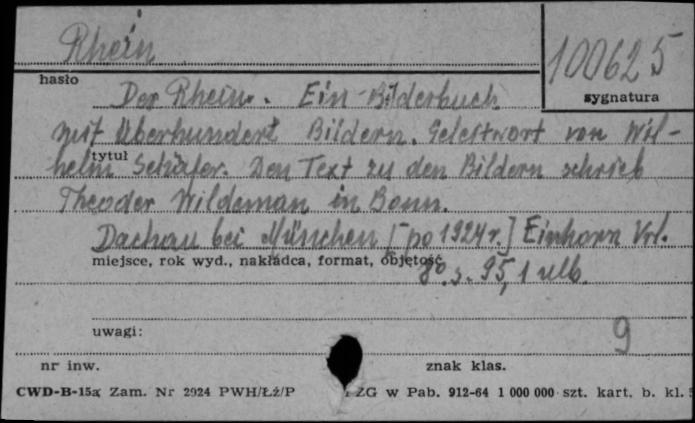 Rhein
100625
hasło
sygnatura
Der Rhein. Ein Bilderbuch
mit überhundert Bildern. Geleitwort von Wil-
tytuł
helm Schäfer. Den Text zu den Bildern schrieb
Theodor Wildeman in Bonn.
Dachau bei München [po 1924 r.] Einhorn Vrl.
miejsce, rok wyd., nakładca, format, objętość
8o. s. 95, 1 nlb.
uwagi:
9
nr inw.
znak klas.
CWD-B-15a Zam. Nr 2924 PWH/Łż/P ZG w Pab. 912-64 1 000 000 szt. kart. b. kl.